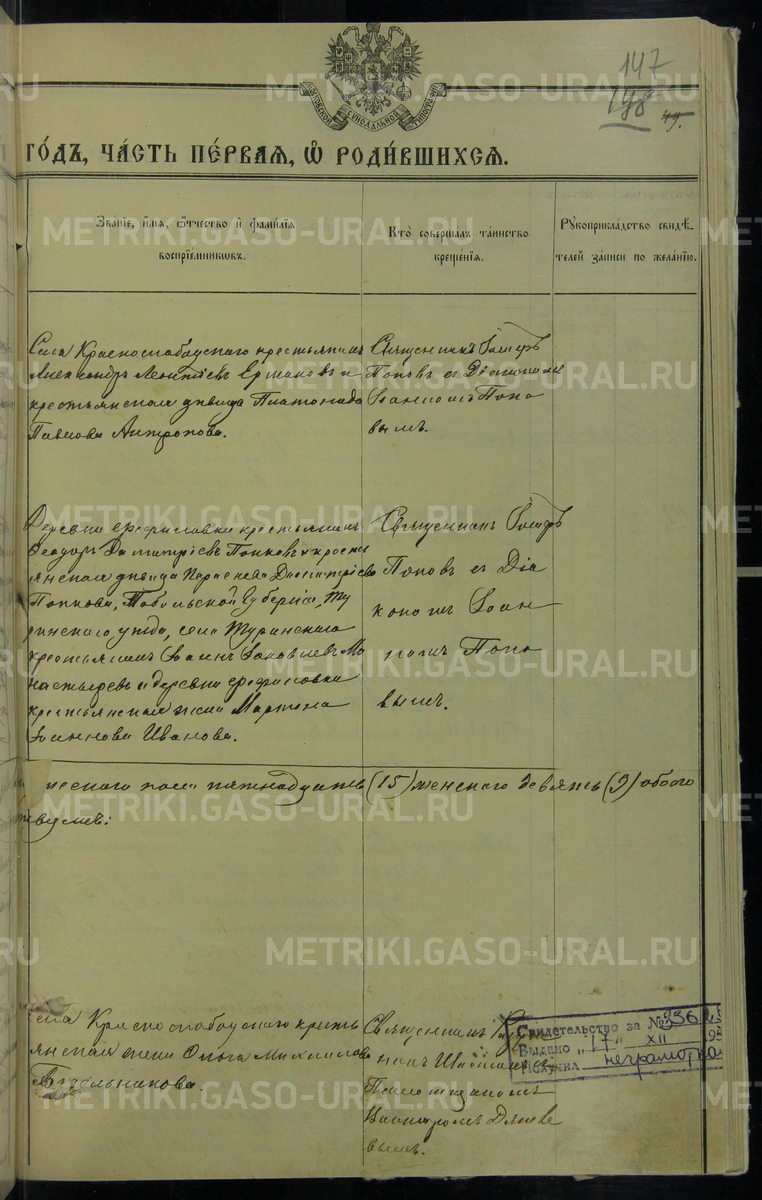 147
198
49.
МОСКОВСКОЙ СѴНОДАЛЬНОЙ ТИПОГРАФІИ
ГО́ДЪ, ЧА́СТЬ ПЕ́РВАЯ, Ѡ҆ РОДИ́ВШИХСЯ.
Зва́нїе, и҆́мя, ѻ҆́тчество и҆ фами́лїя
воспрїе́мникѡвъ.
Кто̀ соверша́лъ та́инство
креще́нїя.
Рꙋкоприкла́дство свидѣ́-
телей за́писи по жела́нїю.
Села Краснослободскаго крестьянинъ
Александръ Леонтіевъ Ермаковъ и
крестьянская дѣвица Платонида
Павлова Антропова.
Священникъ Іосифъ
Поповъ съ Діакономъ
Іоанномъ Попо
вымъ.
Деревни Ерофиловки крестьянинъ
Феодоръ Димитріевъ Попковъ и кресть
янская дѣвица Параскева Димитріева
Попкова, Тобольской Губерніи, Ту
ринскаго уѣзда, села Туринскаго
крестьянинъ Іоаннъ Іаковлевъ Мо
настыревъ и деревни Ерофиловки
крестьянская жена
Іоаннова Иванова.
Священникъ Іосифъ
Поповъ съ Діа
кономъ Іоан
номъ Попо
вымъ.
жескаго пола пятнадцать (15) женскаго девять (9) обоего
Села Краснослободскаго кресть
янская жена Ольга Михаилова
Священникъ
Псаломщикомъ
Викторомъ
вымъ.
Свидетельство за № 236
Выдано "17" XII 195
Получил неграмотная
METRIKI.GASO-URAL.RU